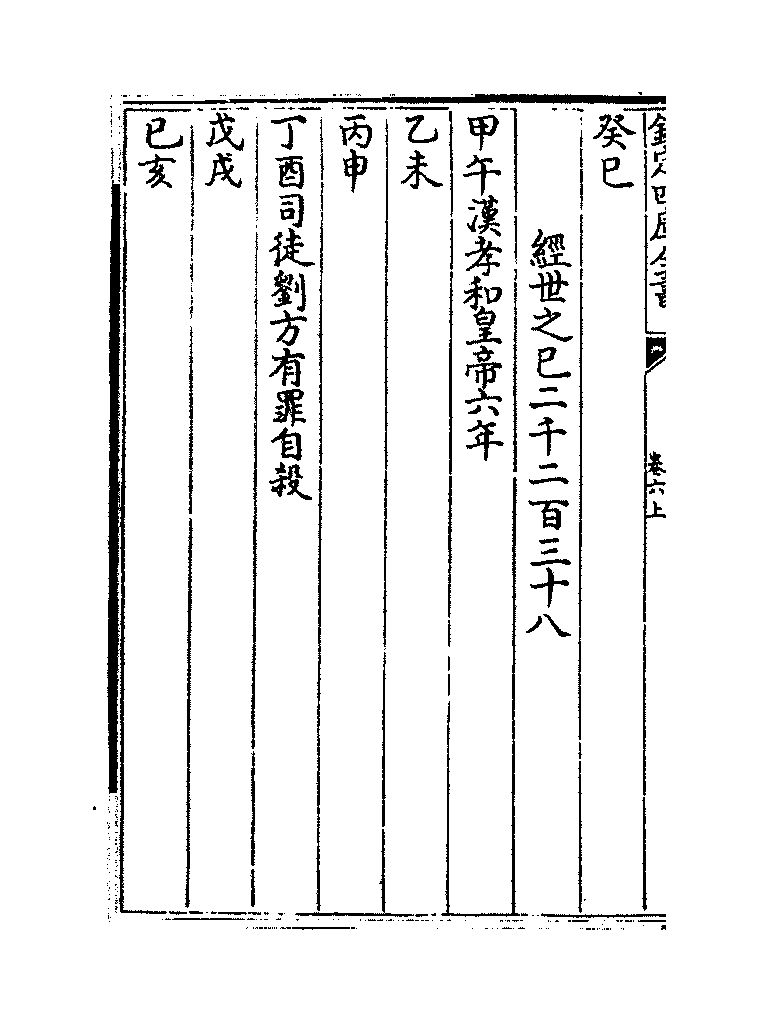 欽定四庫全書
卷六上
癸巳
經世之巳二千二百三十八
甲午漢孝和皇帝六年
乙未
丙申
丁酉司徒劉方有罪自殺
戊戌
己亥